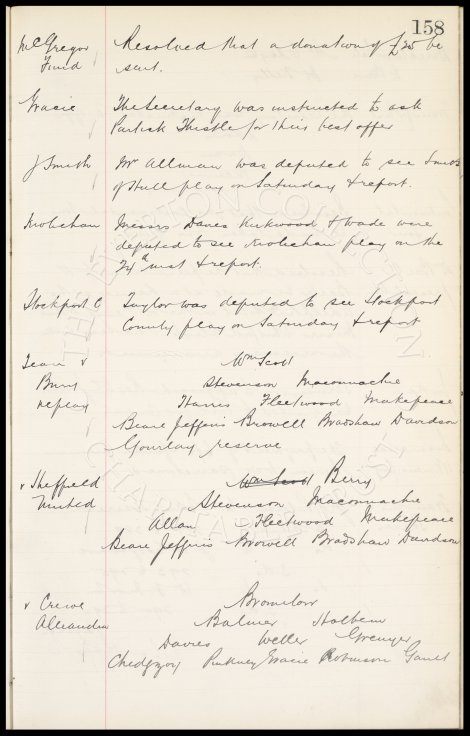 158
McGregor Resolved that a donation of £25 be
Fund sent.
Gracie The Secretary was instructed to ask
Partick Thistle for their best offer
J Smith Mr Allman was deputed to see Smith
of Hull play on Saturday & report.
Messrs Davies Kirkwood & Wade were
deputed to see play on the
24th inst & report.
Stockport C Taylor was deputed to see Stockport
County play on Saturday & report
Team v Wm Scott
Bury Stevenson Maconnachie
replay Harris Fleetwood Makepeace
Beare Jefferis Browell Bradshaw Davidson
Gourlay reserve
v Sheffield Wm Scott Berry
United Stevenson Maconnachie
Allan Fleetwood Makepeace
Beare Jefferis Browell Bradshaw Davidson
v Crewe Bromilow
Alexandra Balmer Holbem
Davies Weller Grenyer
Chedgzoy Pinkney Gracie Robinson Gault